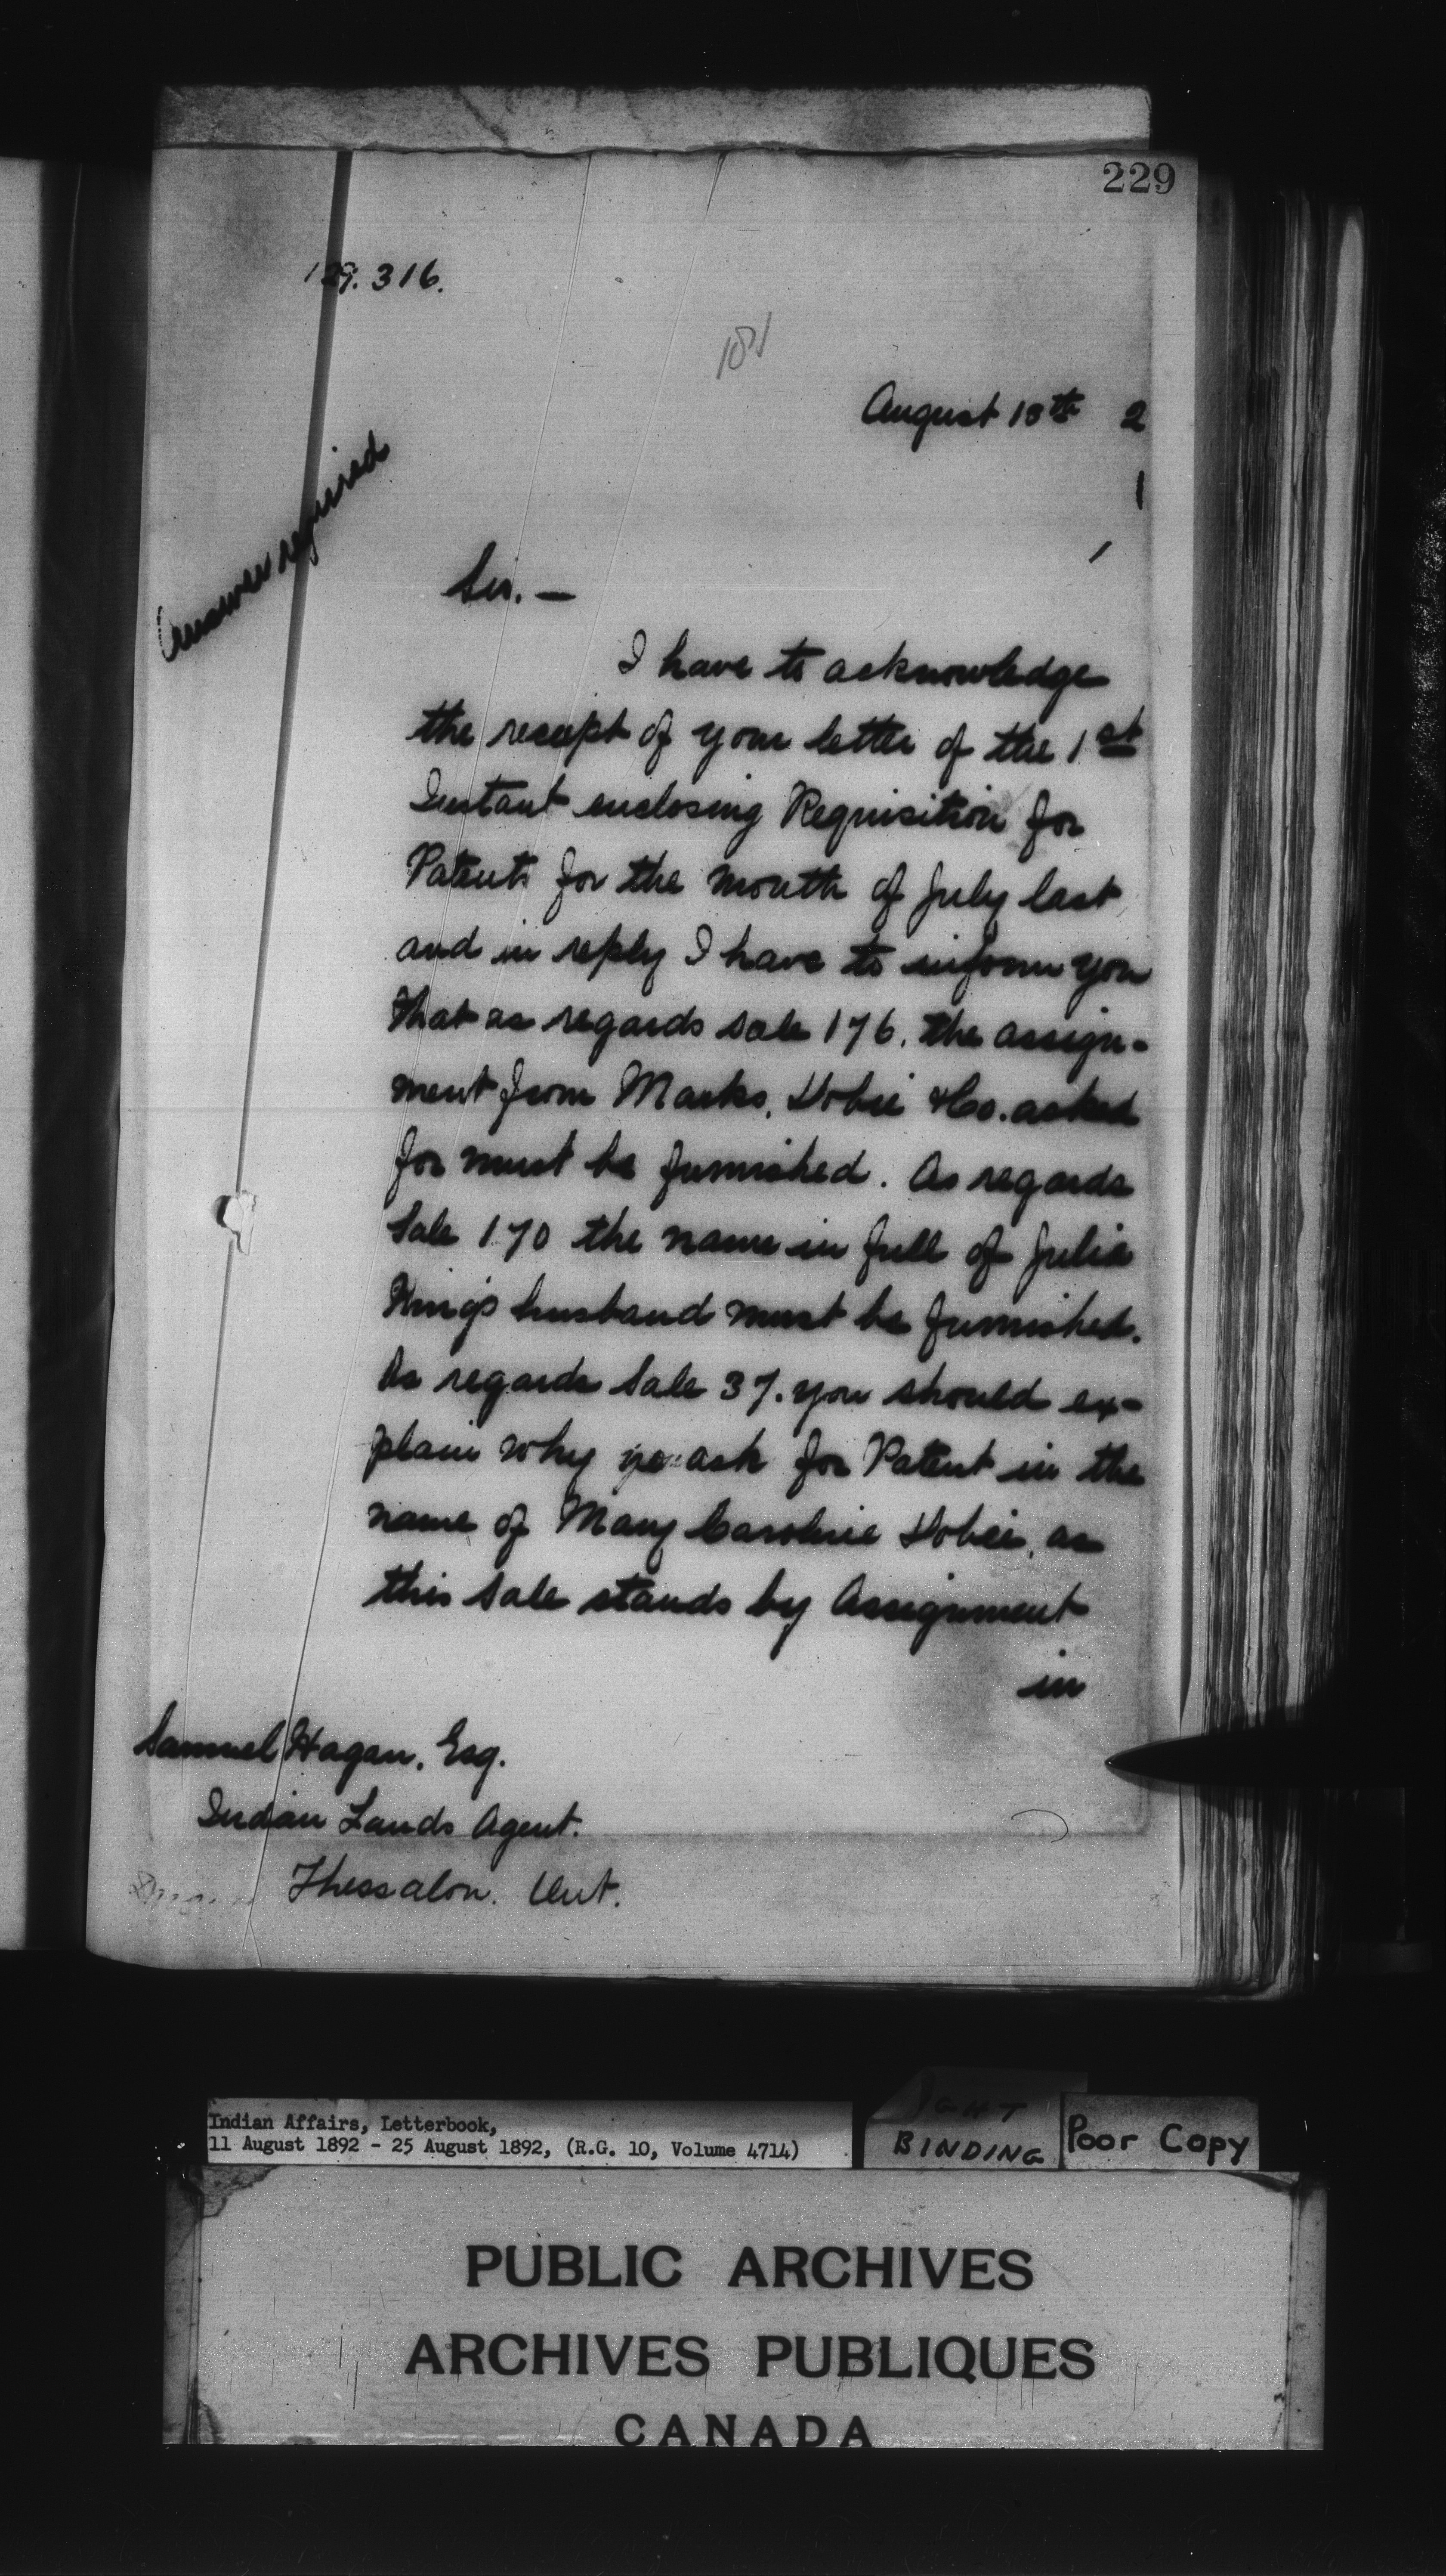 229
139.316.
August 13th 2
Answer required
Sir. —
I have to acknowledge
the receipt of your letter of the 1st
Instant enclosing Requisition for
Patents for the month of July last
and in reply I have to inform you
that as regards sale 176. the assign-
ment from Marks, Dobie & Co. asked
for must be furnished. As regards
Sale 170 the name in full of Julia
King's husband must be furnished.
As regards Sale 37. you should ex-
plain why yo ask for Patent in the
name of Mary Caroline Dobie, as
this Sale stands by Assignment
in
Samuel Hagan, Esq.
Indian Lands Agent.
Thessalon. Ont.
Indian Affairs, Letterbook,
11 August 1892 - 25 August 1892, (R.G. 10, Volume 4714)
BINDING
Poor Copy
PUBLIC ARCHIVES
ARCHIVES PUBLIQUES
CANADA